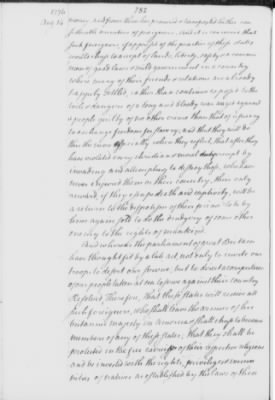 1776
Aug 14
782
money, and from them has procured & transported hither con-
siderable numbers of foreigners. And it is conceived that
such foreigners, if apprised of the practice of these states
would chuse to accept of lands, liberty, safety & a commu-
nion of good laws & mild government, in a country
where many of their friends & relations are already
happily settled, rather than continue exposed to the
toils & dangers of a long and bloody war waged against
a people guilty of no other crime than that of refusing
to exchange freedom for slavery; and that they will do
this the more especially when they reflect that after they
have violated every christian & moral precept by
invading and attempting to destroy those who have
never injured them or their country, their only
reward, if they escape death and captivity, will be
a return to the despotism of their prince to be by
him again sold to do the drudgery of some other
enemy to the rights of mankind.
And whereas the parliament of great Britain
have thought fit by a late act, not only to invite our
troops to desert our service, but to direct a compulsion
of our people taken at sea to serve against their country
Resolved, Therefore, that these states will receive all
such foreigners who shall leave the armies of his
britannic majesty in America & shall chuse to become
members of any of these states; that they shall be
protected in the free exercise of their respective religions
and be invested with the rights, privileges & immu-
nities of natives as established by the laws of these